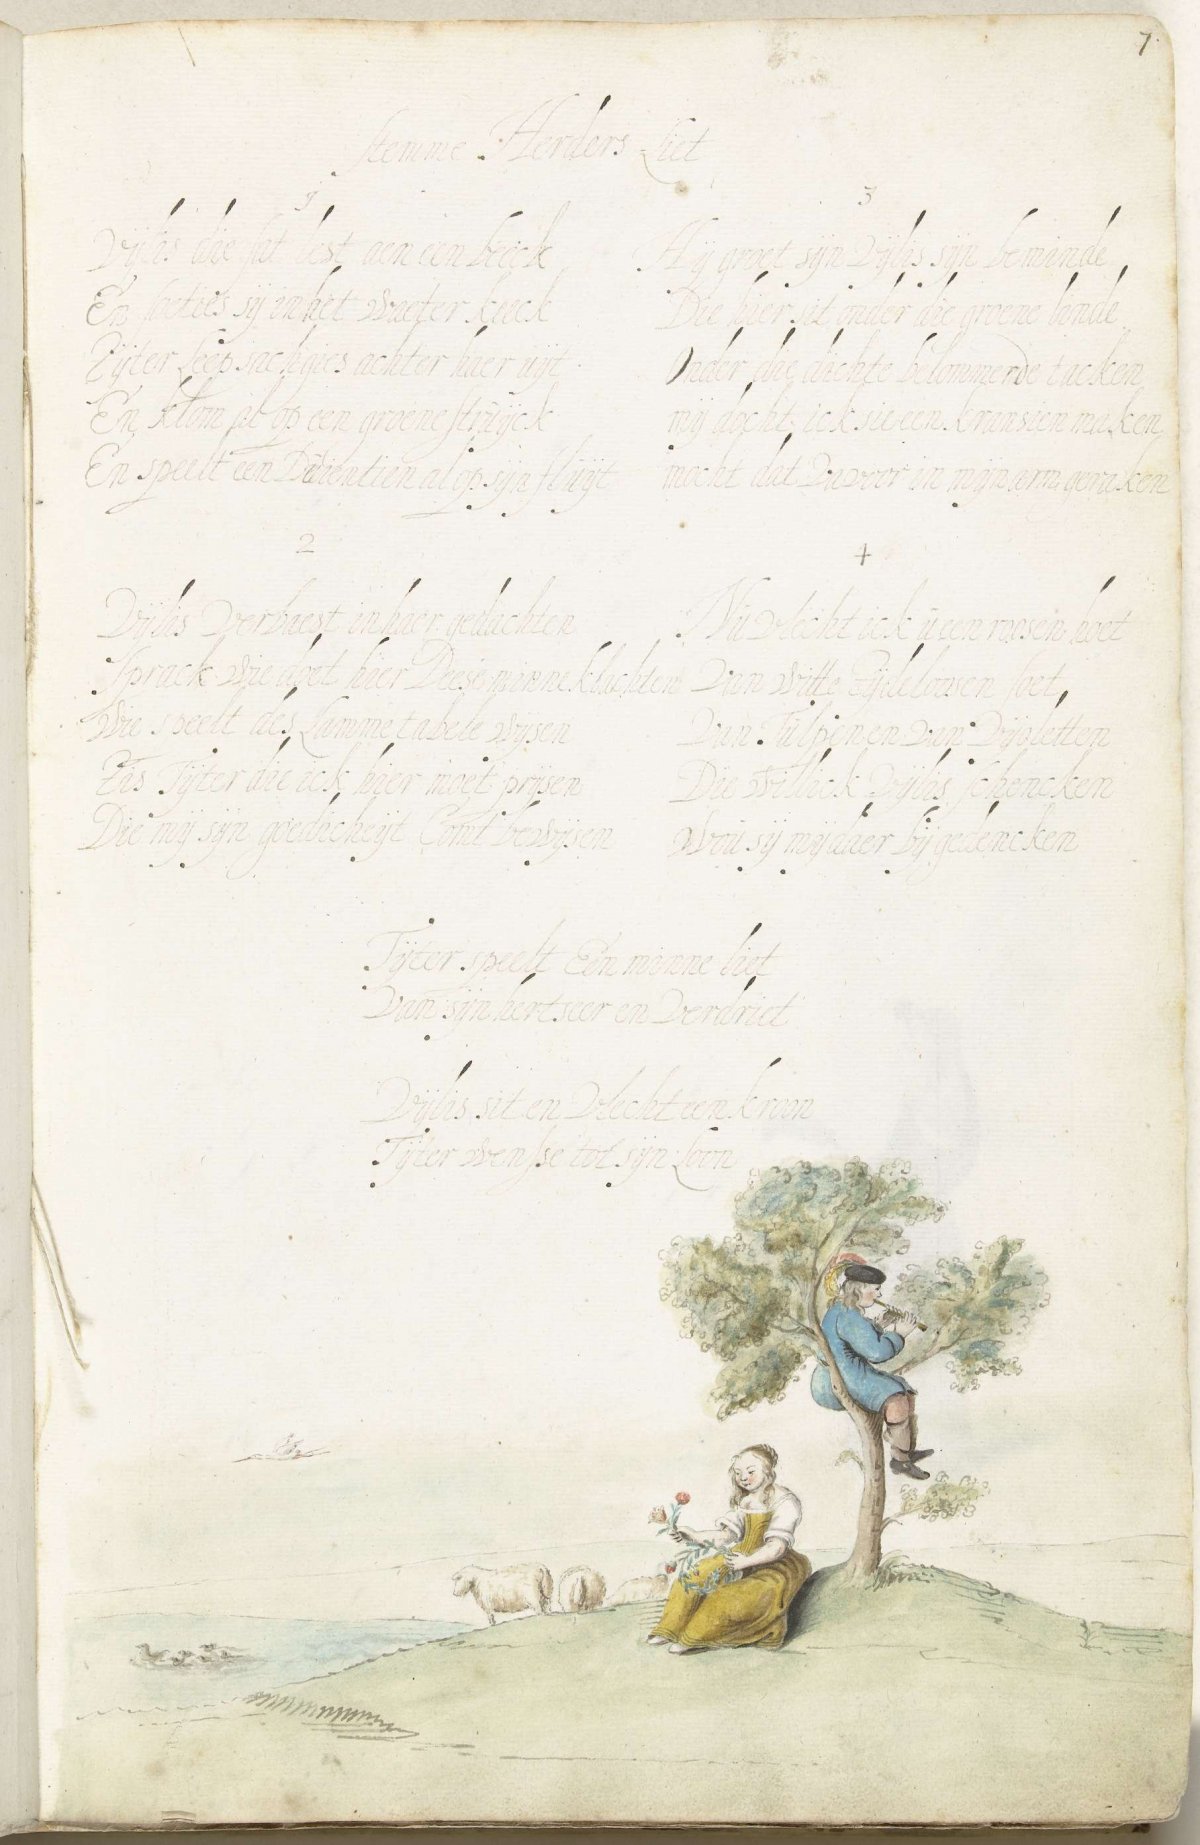 7
stemme Herders Liet
1
Vijlis die sat lest aen een beeck
En soeties sij in het waeter keeck
Tijter leep sachgies achter haer uijt
En klom al op een groene struijck
En speelt een Duioentien al op sijn fluijt
2
Vijlis verbaest in haer gedachten
Sprack wie doet hier Deese minne klachten
Wie speelt des Lammetabele wijsen
Tis Tijter die ick hier moet prijsen
Die mij sijn goedicheijt Comt bewijsen
3
Hij groet sijn Vijlis sijn beminde
Die hier sit onder die groene linde
Onder die dichte belommerde tacken
mij docht ick sie een kransien maken
mocht dat Duvoor in mijn arm geraken
4
Nu vlecht ick u een roosen hoet
Van witte Tijdeloosen soet
Van Tulpen en van Vijoletten
Die wil ick Vijlis schencken
Wou sij mij daer bij gedencken
Tijter speelt Een minne liet
Van sijn hertseer en verdriet
Vijlis sit en vlecht een kroon
Tijter wenste tot sijn Loon